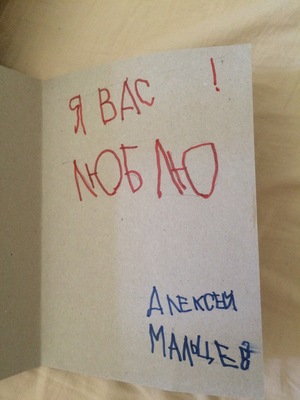 Я ВАС !
ЛЮБЛЮ
АЛЕКСЕЙ
МАЛЬЦЕВ